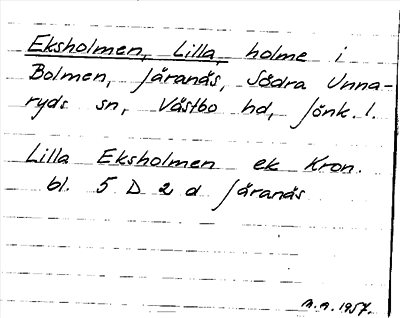 Eksholmen, Lilla, holme i
Bolmen, Järanäs, Södra Unna-
ryds sn, Västbo hd, Jönk. l.
Lilla Eksholmen ek Kron.
bl. 5 D 2 d Järanäs
1957.